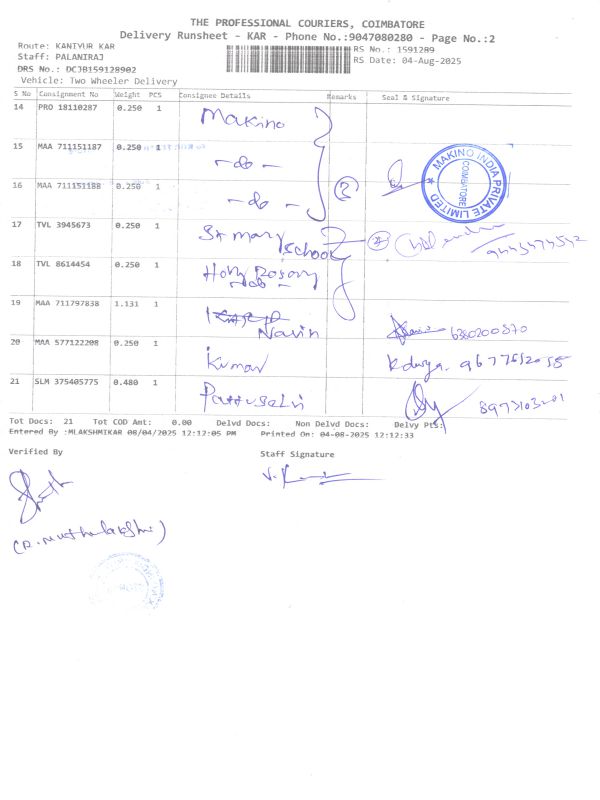 THE PROFESSIONAL COURIERS, COIMBATORE
Delivery Runsheet - KAR - Phone No.:9047080280 - Page No.:2
Route: KANIYUR KAR
RS No.: 1591289
Staff: PALANIRAJ
RS Date: 04-Aug-2025
DRS No.: DCJB159128902
Vehicle: Two Wheeler Delivery
S No Consignment No Weight PCS Consignee Details Remarks Seal & Signature
14 PRO 18110287 0.250 1 Makino
15 MAA 711151187 0.250 1 -do-
16 MAA 711151188 0.250 1 -do- 3
MAKINO INDIA PRIVATE LIMITED
COIMBATORE
17 TVL 3945673 0.250 1 St mary school
18 TVL 8614454 0.250 1 Holy Rosary
-do-
19 MAA 711797838 1.131 1 Navin 6380200870
20 MAA 577122208 0.250 1 Kumar
21 SLM 375405775 0.480 1
Tot Docs: 21 Tot COD Amt: 0.00 Delvd Docs: Non Delvd Docs: Delvy Pts:
Entered By :MLAKSHMIKAR 08/04/2025 12:12:05 PM Printed On: 04-08-2025 12:12:33
Verified By Staff Signature